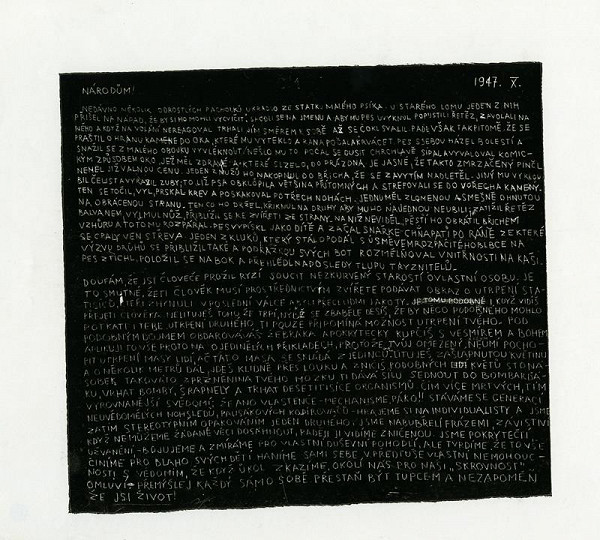 NÁRODŮM! 1947. X.
NEDÁVNO NĚKOLIK DOROSTLÝCH PACHOLKŮ UKRADLO ZE STATKU MALÉHO PSÍKA. U STARÉHO LOMU JEDEN Z NICH
PŘIŠEL NA NÁPAD, ŽE BY SI HO MOHLI VYCVIČIT, JMÉNU A ABY MU PES UVYKNUL POPUSTILI ŘETĚZ, ZAVOLALI NA
NĚHO A KDYŽ NA VOLÁNÍ NEREAGOVAL TRHALI JÍM SMĚREM K SOBĚ AŽ SE COKL SVALIL PADL VŠAK TAK PITOMĚ, ŽE SE
PRAŠTIL O HRANU KAMENE DO OKA, KTERÉ MU VYTEKLO A KANA PES SEBOU HÁZEL BOLESTÍ A
SNAŽIL SE Z MALÉHO OBOJKU VYVLÉKNOUT NEŠLO MU TO POČAL SE DUSIT CHRCHLAVĚ SÍPAL A VYVALOVAL KOMIC-
KÝM ZPŮSOBEM OKO, JEŽ MĚL ZDRAVÉ A KTERÉ SLZELO, DO PRÁZDNA, JE JASNÉ, ŽE TAKTO ZMRZAČENÝ PINČL
NEMĚL JIŽ VALNOU CENU. JEDEN Z NUDY HO NAKOPNUL DO BŘICHA, ŽE SE ZAVYTÍM NADLETĚL. JINÝ MU VYKLOU-
BIL ČELIST A VYRAZIL ZUBY, TO JIŽ PSA OBKLOPILA VĚTŠINA PŘÍTOMNÝCH A STREFOVALI SE DO VOŘECHA KAMENY.
TEN SE TOČIL, VYL, PRSKAL KREV A POSKAKOVAL PO TŘECH NOHÁCH, JEDNU MĚL ZLOMENOU A SMĚŠNĚ OHNUTOU
NA OBRÁCENOU STRANU. TEN CO HO DRŽEL, KŘIKNUL NA DRUHÝ ABY MU HO NAJEDNOU NEUBILI, ZATÍŽIL ŘETĚZ
BALVANEM, VYLMUL NŮŽ, PŘIBLÍŽIL SE KE ZVÍŘETI ZE STRANY, NA NÍŽ NEVIDĚL, PĚSTÍ HO OBRÁTIL BŘICHEM
VZHŮRU A TOTO MU ROZPÁRAL. PES VYPÍSKL JAKO DÍTĚ A ZAČAL SŇAREM CHŇAPATI PO RÁNĚ ZE KTERÉ
SE CPALY VEN STŘEVA. JEDEN Z KLUKŮ KTERÝ STÁL OPODÁL S ÚSMĚVEM ROZPAČITÉHO BLBCE NA
VÝZVU DRUHŮ SE PŘIBLÍŽIL TAKÉ A PODRÁŽKOU SVÝCH BOT ROZMĚLŇOVAL VNITŘNOSTI NA KAŠI.
PES ZTICHL, POLOŽIL SE NA BOK A PŘEHLÉDL NAPOSLEDY TLUPU TRYZNITELŮ.
DOUFÁM, ŽE JSI ČLOVĚČE PROŽIL RYZÍ SOUCIT NEZKURVENÝ STAROSTÍ O VLASTNÍ OSOBU. JE
TO SMUTNÉ, ŽE TI ČLOVĚK MUSÍ PROSTŘEDNICTVÍM ZVÍŘETE PODÁVAT OBRAZ O UTRPENÍ STA-
TISÍCŮ, KTEŘÍ ZHYNULI V POSLEDNÍ VÁLCE ANEBO PŘECI LIDMI JAKO TY. JE TOMU PODOBNĚ I KDYŽ VIDÍŠ
PŘEJETÍ ČLOVĚKA NELITUJEŠ TOHO, ŽE TRPÍ, NÝBRŽ SE ZBABĚLE DĚSÍŠ, ŽE BY NĚCO PODOBNÉHO MOHLO
POTKATI I TEBE. UTRPENÍ DRUHÉHO TI POUZE PŘIPOMÍNÁ MOŽNOST UTRPENÍ TVÉHO. POD
PODOBNÝM DOJMEM OBDAROVÁVÁŠ ŽEBRÁKA A POKRYTECKY KUPČÍŠ S VESMÍREM A BOHEM
APLIKUJI TO VŠE PROTO NA OJEDINĚLÝCH PŘÍKLADECH, PROTOŽE TVŮJ OMEZENÝ, NEUMÍ POCHO-
PIT UTRPENÍ MASY LIDÍ, AČ TATO MASA SE SKLÁDÁ Z JEDINCŮ. LITUJEŠ ZAŠLÁPNUTOU KVĚTINU
A O NĚKOLIK METRŮ DÁL, JDEŠ KLIDNĚ PŘES LOUKU A ZNIČÍŠ PODOBNÝCH KVĚTŮ STONÁ-
SOBEK. TAKOVÁTO ZPRZNĚNINA TVÉHO MOZKU TI DÁVÁ SÍLU SEDNOUT DO BOMBARĎÁ-
KU, VRHAT BOMBY, ŠRAPNELY A TRHAT DESETITISÍCE ORGANISMŮ ČÍM VÍCE MRTVÝCH, TÍM
VYROVNANĚJŠÍ SVĚDOMÍ, ŽE ANO VLASTENČE - MECHANISME, PÁKO!! STÁVÁME SE GENERACÍ
NEUVĚDOMĚLÝCH NOHSLEDŮ, PAUŠÁKOVÝCH KOPÍROVAČŮ - HRAJEME SI NA INDIVIDUALISTY A JSME
ZATÍM STEREOTYPNÍM OPAKOVÁNÍM JEDEN DRUHÉHO, JSME NABUBŘELÍ FRÁZEMI, ZÁVISTIVÍ
KDYŽ NEMŮŽEME ŽÁDANÉ VĚCI DOSÁHNOUT, RADĚJI JI VIDÍME ZNIČENOU. JSME POKRYTEČTÍ
UŽVANĚNÍ - BOJUJEME A ZMÍRÁME PRO VLASTNÍ DUŠEVNÍ POHODLÍ, ALE TVRDÍME, ŽE TO VŠE
ČINÍME PRO BLAHO SVÝCH DĚTÍ HANÍME SAMI SEBE, V PŘEDTUŠE VLASTNÍ NEMOHOUC-
NOSTI, S VĚDOMÍM, ŽE KDYŽ ÚKOL ZKAZÍME, OKOLÍ NÁS PRO NAŠI „SKROVNOST"
OMLUVÍ - PŘEMÝŠLEJ KAŽDÝ SÁM O SOBĚ PŘESTAŇ BÝT TUPCEM A NEZAPOMEŇ
ŽE JSI ŽIVOT!